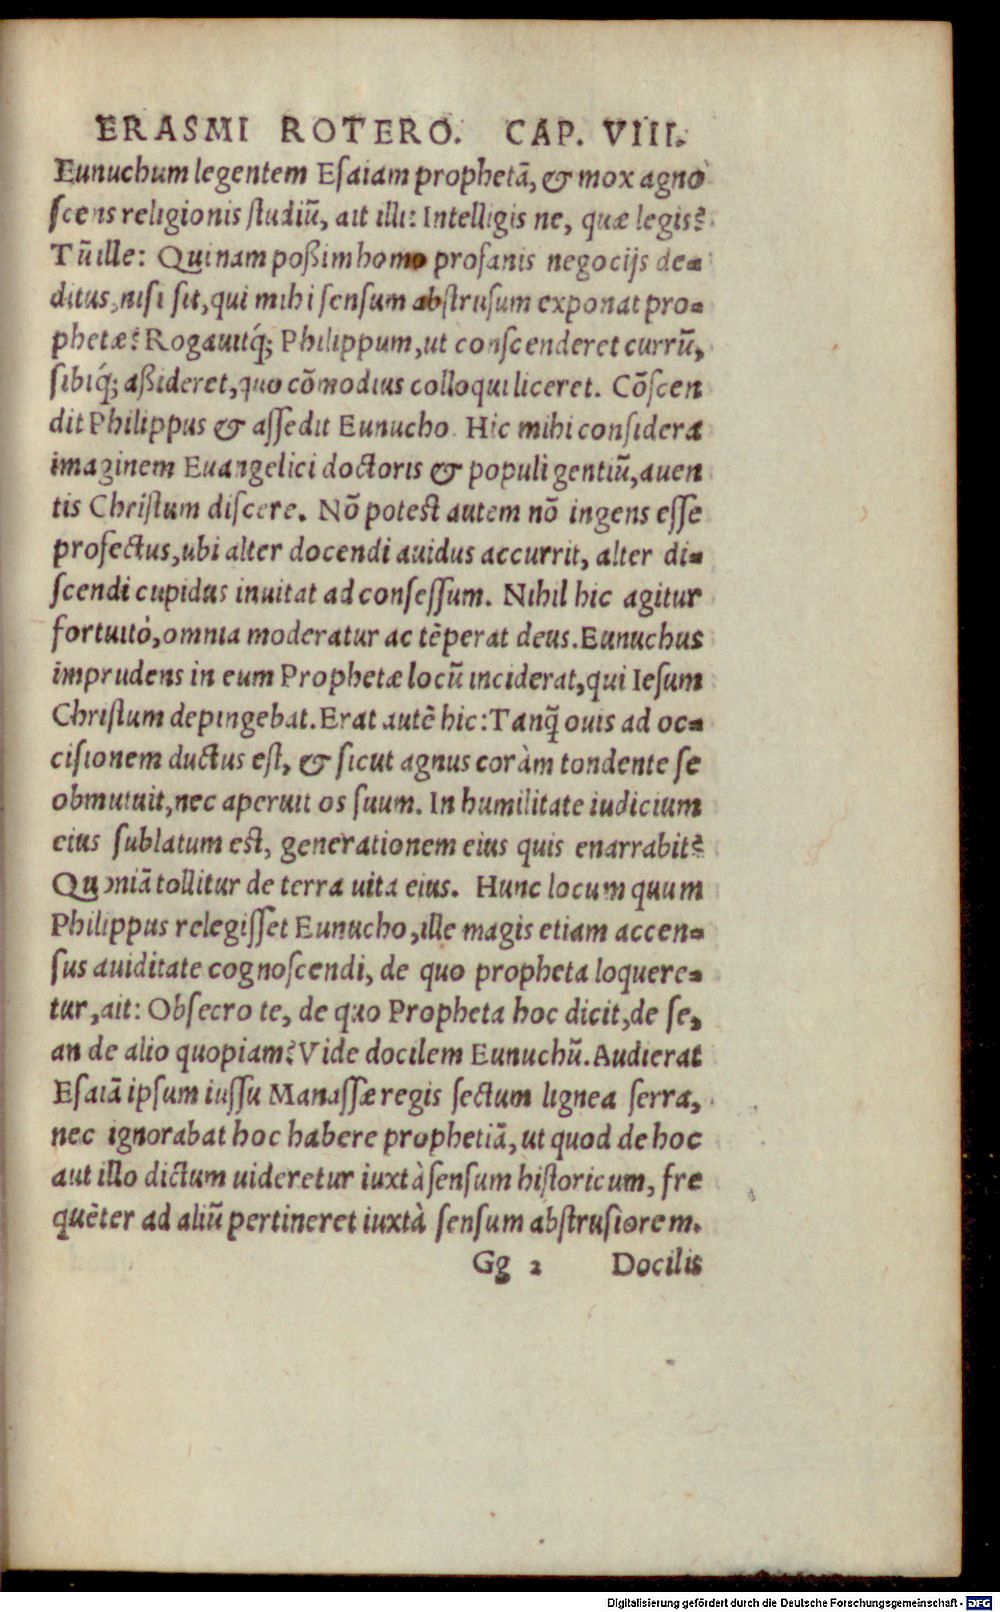 ERASMI ROTERO. CAP. VIII.
Eunuchum legentem Esaiam prophetā, & mox agno
scens religionis studiū, ait illi: Intelligis ne, quæ legis?
Tū ille: Qui nam poßim homo profanis negocijs de-
ditus, nisi sit, qui mihi sensum abstrusum exponat pro-
phetæ? Rogauitq́; Philippum, ut conscenderet currū,
sibiq́; aßideret, quo cōmodius colloqui liceret. Cōscen
dit Philippus & assedit Eunucho. Hic mihi considera
imaginem Euangelici doctoris & populi gentiū, auen
tis Christum discere. Nō potest autem nō ingens esse
profectus, ubi alter docendi auidus accurrit, alter di-
scendi cupidus inuitat ad consessum. Nihil hic agitur
fortuitò, omnia moderatur ac tēperat deus. Eunuchus
imprudens in eum Prophetæ locū inciderat, qui Iesum
Christum depingebat. Erat autē hic: Tanq̃ ouis ad oc-
cisionem ductus est, & sicut agnus coràm tondente se
obmutuit, nec aperuit os suum. In humilitate iudicium
eius sublatum est, generationem eius quis enarrabit?
Quoniā tollitur de terra uita eius. Hunc locum quum
Philippus relegisset Eunucho, ille magis etiam accen-
sus auiditate cognoscendi, de quo propheta loquere-
tur, ait: Obsecro te, de quo Propheta hoc dicit, de se,
an de alio quopiam? Vide docilem Eunuchū. Audierat
Esaiā ipsum iussu Manassæ regis sectum lignea serra,
nec ignorabat hoc habere prophetiā, ut quod de hoc
aut illo dictum uideretur iuxtà sensum historicum, fre
quēter ad aliū pertineret iuxtà sensum abstrusiorem.
Gg 2 Docilis
Digitalisierung gefördert durch die Deutsche Forschungsgemeinschaft - DFG